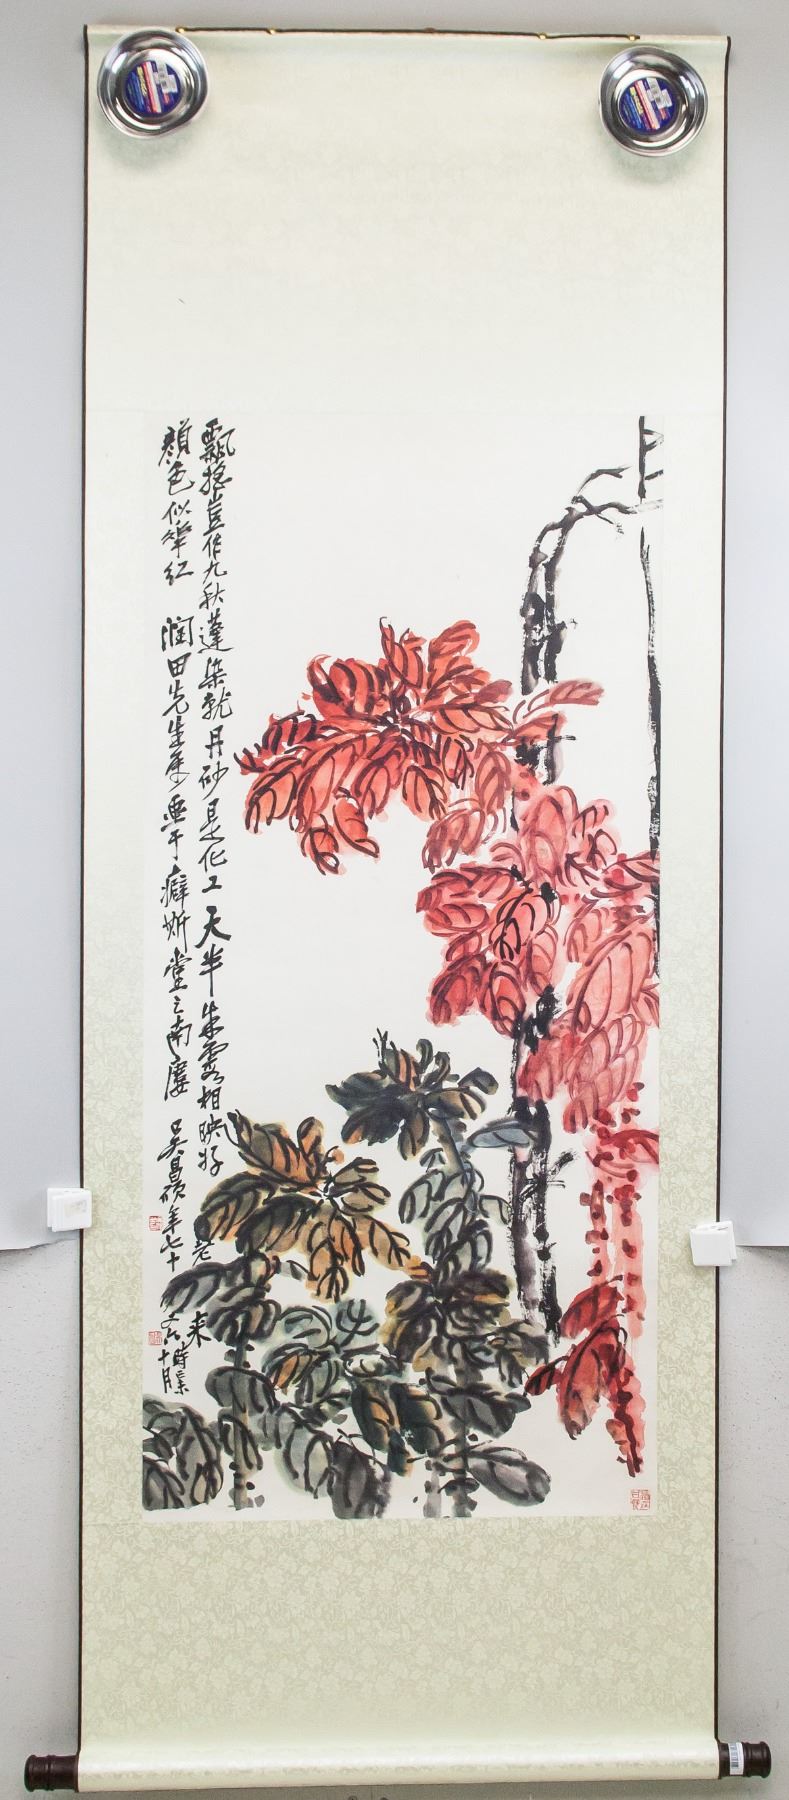 飄搖豈作九秋蓬染就丹砂是化工天半朱霞相映好老來
顏色似花紅 潤田先生屬畫于癖斯堂之南廔 吳昌碩年七十
又六時
十月